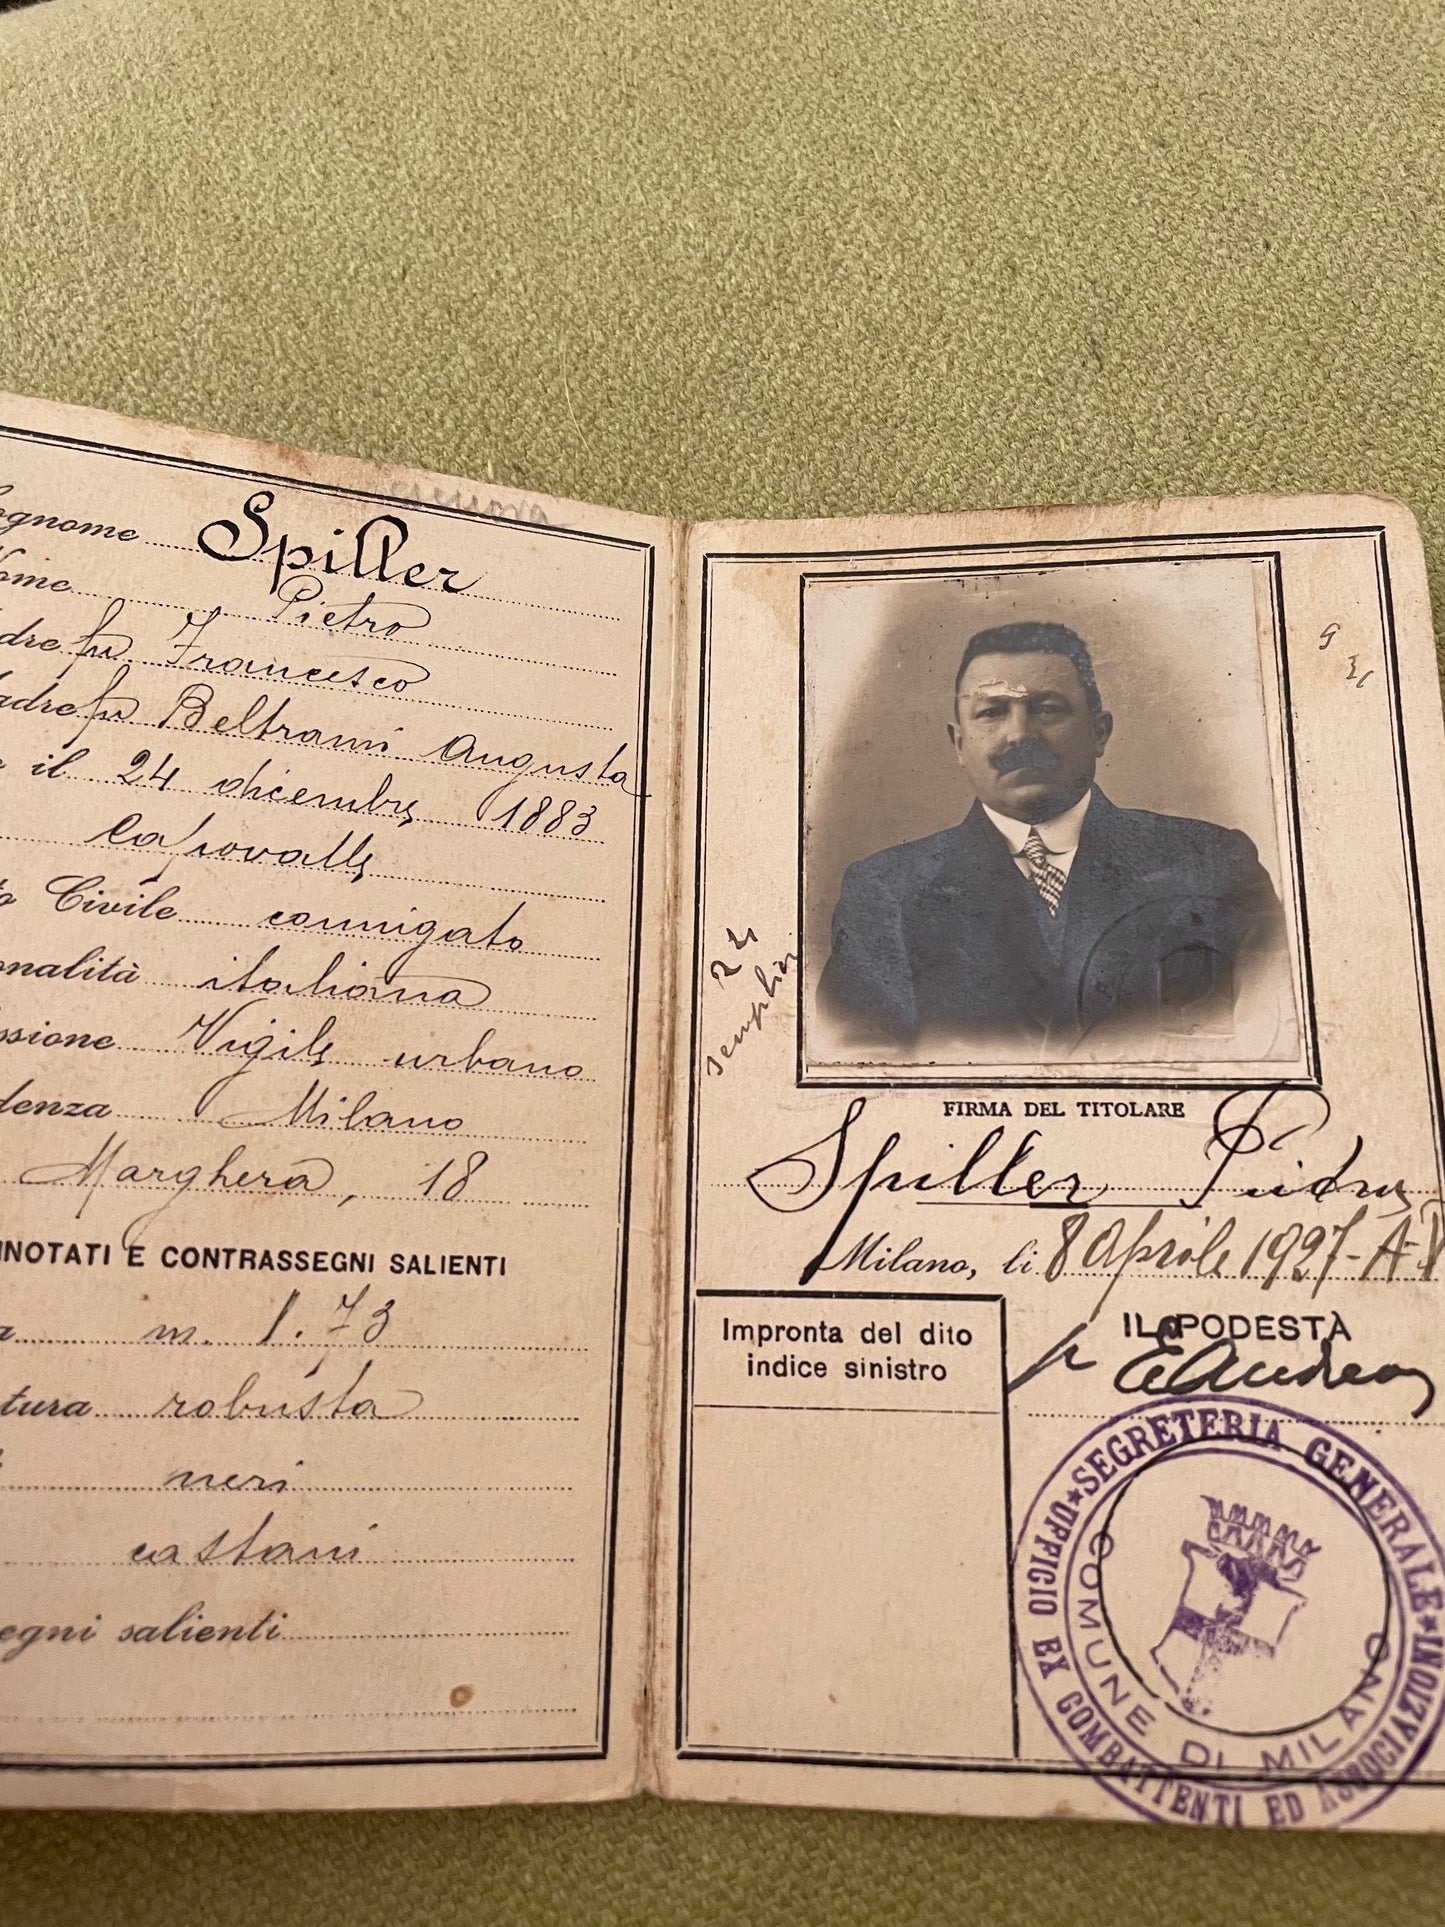 ognome Spiller
ome Pietro
dre fu Francesco
adre fu Beltrami Augusta
il 24 dicembre 1883
Caprovalle
o Civile coniugato
onalità italiana
ssione Vigile urbano
denza Milano
Marghera, 18
NNOTATI E CONTRASSEGNI SALIENTI
a m. 1.73
tura robusta
neri
castani
egni salienti
24
FIRMA DEL TITOLARE
Spiller Pietro
Milano, li 8 Aprile 1927-A-V
Impronta del dito
indice sinistro
IL PODESTÀ
p
SEGRETERIA GENERALE
UFFICIO EX COMBATTENTI ED ASSOCIAZIONI
COMUNE DI MILANO